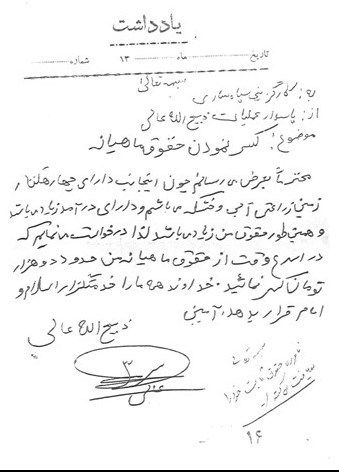 یادداشت
تاریخ ماه ۱۳ شماره
بسمه تعالی
به: کارگزینی سپاه ساری
از: پاسدار عملیات ذبیح الله عالی
موضوع: کسر نمودن حقوق ماهیانه
محترماً بعرض می رسانم چون اینجانب دارای چهار هکتار
زمین زراعتی آبی و خشکه می باشم و دارای درآمد زیاد می باشد
و همین طور حقوق من زیاد می باشد لذا درخواست می نمایم که
در اسرع وقت از حقوق ماهیانه من حدود دو هزار
تومان کسر نمائید. خداوند همه ما را خدمتگزار اسلام و
امام قرار بدهد. آمین
ذبیح الله عالی
بسمه تعالی
حقوق ثابت
۱۶